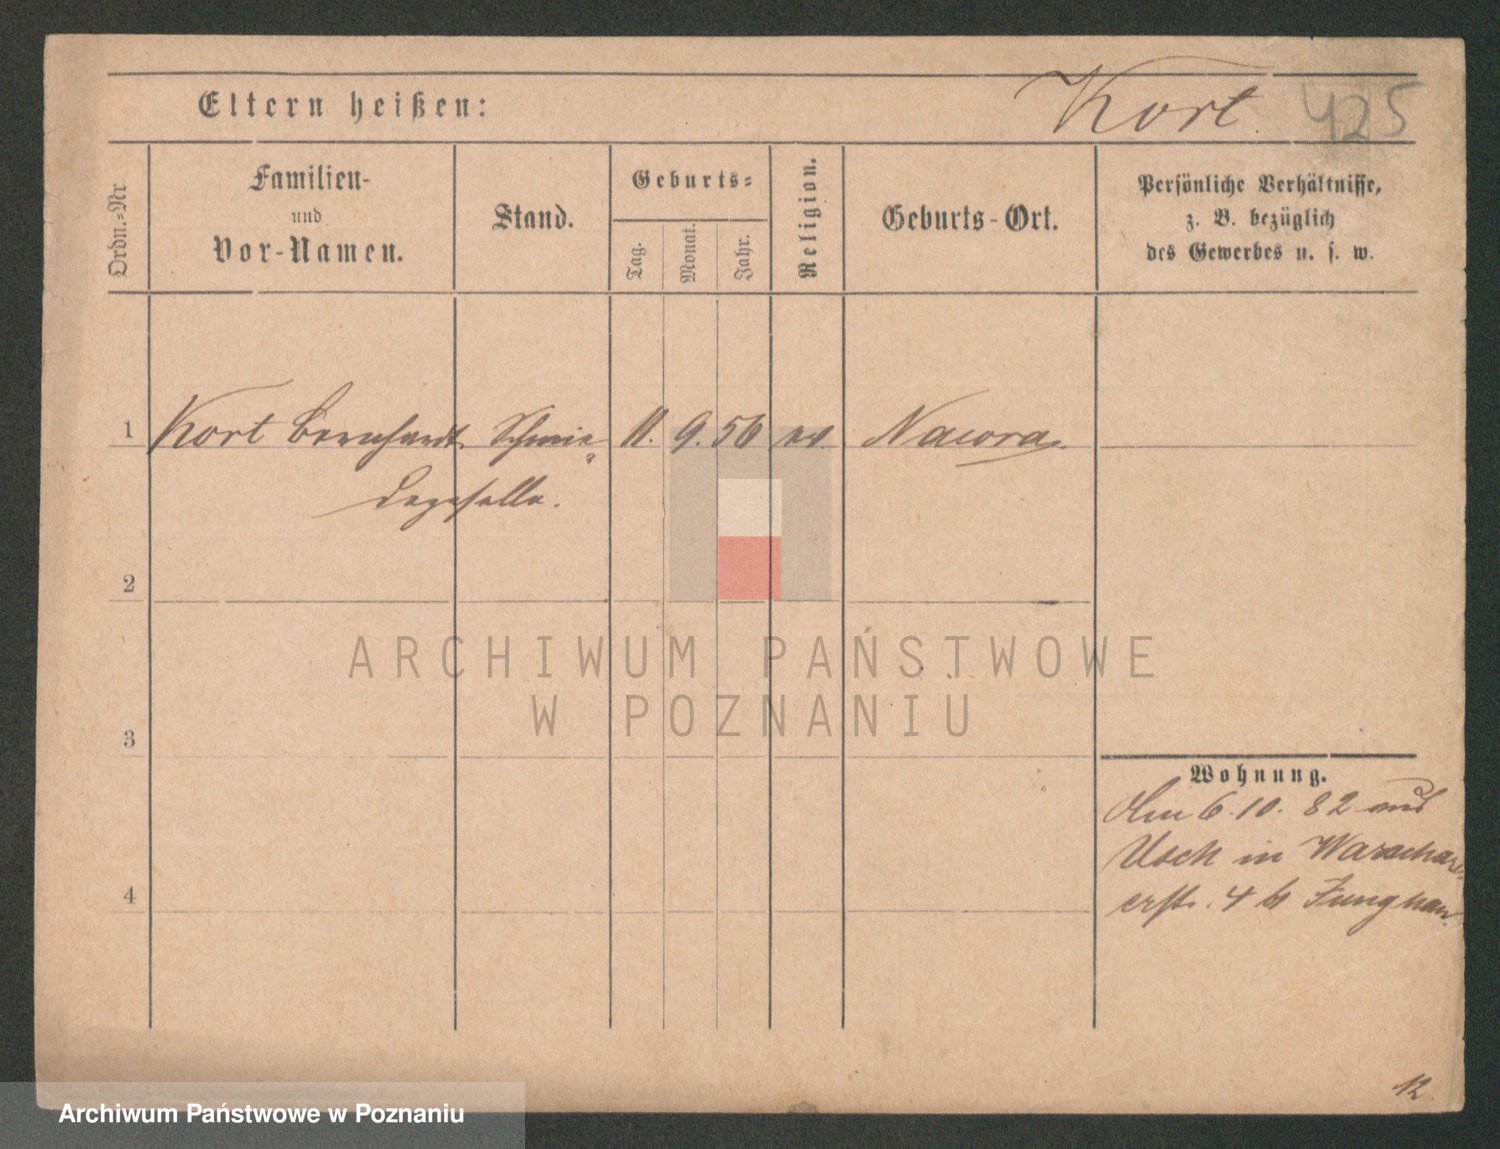 Eltern heißen:
Kort. 425
Ordn.-Nr.
Familien-
und
Vor-Namen.
Stand.
Geburts-
Tag.
Monat.
Jahr.
Religion.
Geburts-Ort.
Persönliche Verhältnisse,
z. B. bezüglich
des Gewerbes u. s. w.
1 Kort Bernhardt Schmie- 11. 9. 56 ev.
degeselle.
2
ARCHIWUM PAŃSTWOWE
W POZNANIU
3
Wohnung.
6.10.82 aus
Usch in
4
12
Archiwum Państwowe w Poznaniu